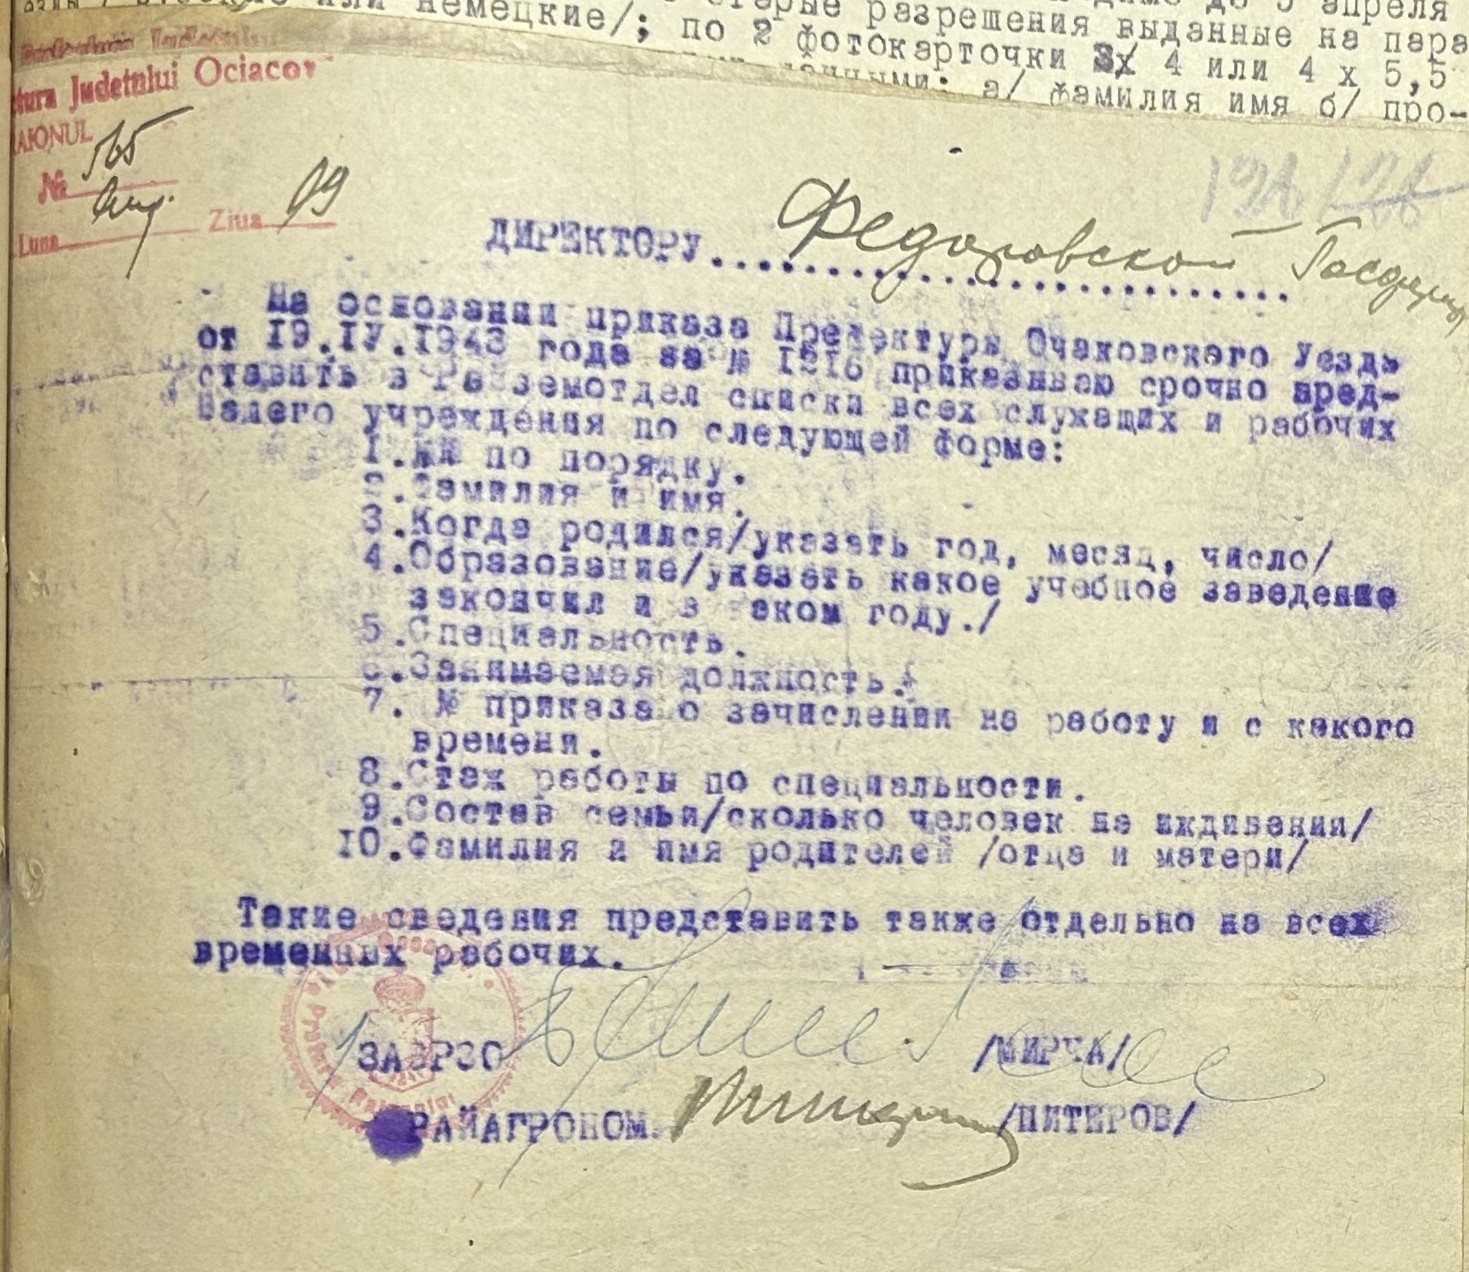 немецкие/; по 2 фотокарточки 3х 4 или 4 х 5,5
старые разрешения выданные на пара
до 5 апреля
данными: а/ фамилия имя б/ про-
tura Judetului Ociacov
RAIONUL
№ 565
Luna Aug. Ziua 19
ДИРЕКТОРУ Федоровской
На основании приказа Префектуры Очаковского Уезда
от 19.IV.1943 года за № 1216 приказываю срочно пред-
ставить в земотдел списки всех служащих и рабочих
Вашего учреждения по следующей форме:
1.№№ по порядку.
2.Фамилия и имя.
3.Когда родился/указать год, месяц, число/
4.Образование/указать какое учебное заведение
закончил и в аком году./
5.Специальность.
6.Занимаемая должность.
7. № приказа о зачислении на работу и с какого
времени.
8.Стаж работы по специальности.
9.Состав семьи/сколько человек на иждивения/
10.Фамилия и имя родителей /отца и матери/
Такие сведения представить также отдельно на всех
временных рабочих.
ЗАВРЗО /МИРЧА/
РАЙАГРОНОМ /ПИТЕРОВ/